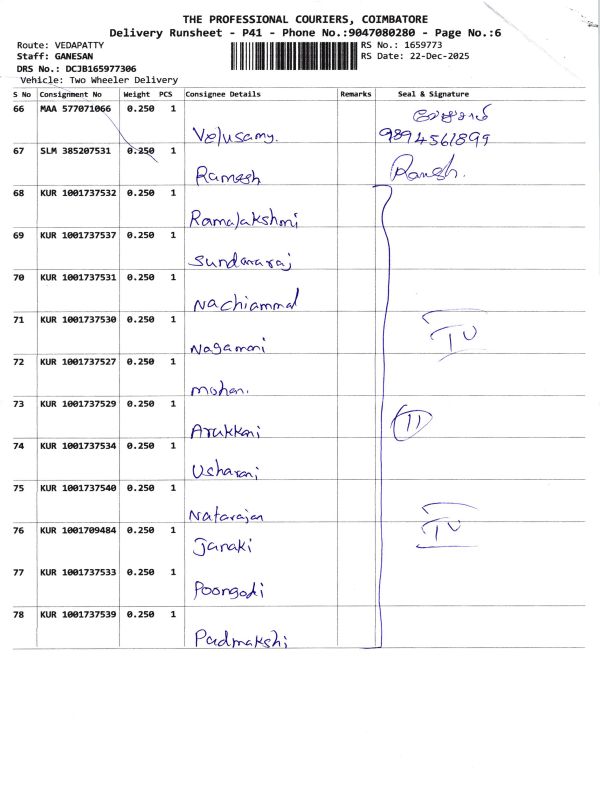 THE PROFESSIONAL COURIERS, COIMBATORE
Delivery Runsheet - P41 - Phone No.:9047080280 - Page No.:6
Route: VEDAPATTY
Staff: GANESAN
DRS No.: DCJB165977306
Vehicle: Two Wheeler Delivery
RS No.: 1659773
RS Date: 22-Dec-2025
S No Consignment No Weight PCS Consignee Details Remarks Seal & Signature
66 MAA 577071066 0.250 1 Velusamy.
9894561899
67 SLM 385207531 0.250 1 Ramesh Ramesh.
68 KUR 1001737532 0.250 1 Ramalakshmi
69 KUR 1001737537 0.250 1 Sundararaj
70 KUR 1001737531 0.250 1 Nachiammal
71 KUR 1001737530 0.250 1 Nagamani
72 KUR 1001737527 0.250 1 mohan.
73 KUR 1001737529 0.250 1 Arukkani
11
74 KUR 1001737534 0.250 1 Usharani
75 KUR 1001737540 0.250 1 Natarajan
76 KUR 1001709484 0.250 1 Janaki
77 KUR 1001737533 0.250 1 Poongodi
78 KUR 1001737539 0.250 1 Padmakshi